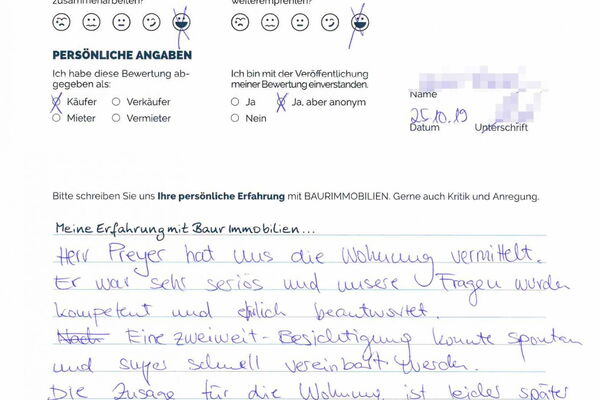 zusammenarbeiten?
weiterempfehlen?
PERSÖNLICHE ANGABEN
Ich habe diese Bewertung ab-
gegeben als:
Käufer
Verkäufer
Mieter
Vermieter
Ich bin mit der Veröffentlichung
meiner Bewertung einverstanden.
Ja
Ja, aber anonym
Nein
Name
25.10.19
Datum
Unterschrift
Bitte schreiben Sie uns Ihre persönliche Erfahrung mit BAURIMMOBILIEN. Gerne auch Kritik und Anregung.
Meine Erfahrung mit Baur Immobilien...
Herr Preyer hat uns die Wohnung vermittelt.
Er war sehr seriös und unsere Fragen wurden
kompetent und ehrlich beantwortet.
Eine zweiweit-Besichtigung konnte spontan
und super schnell vereinbart werden.
Die Zusage für die Wohnung ist leider später